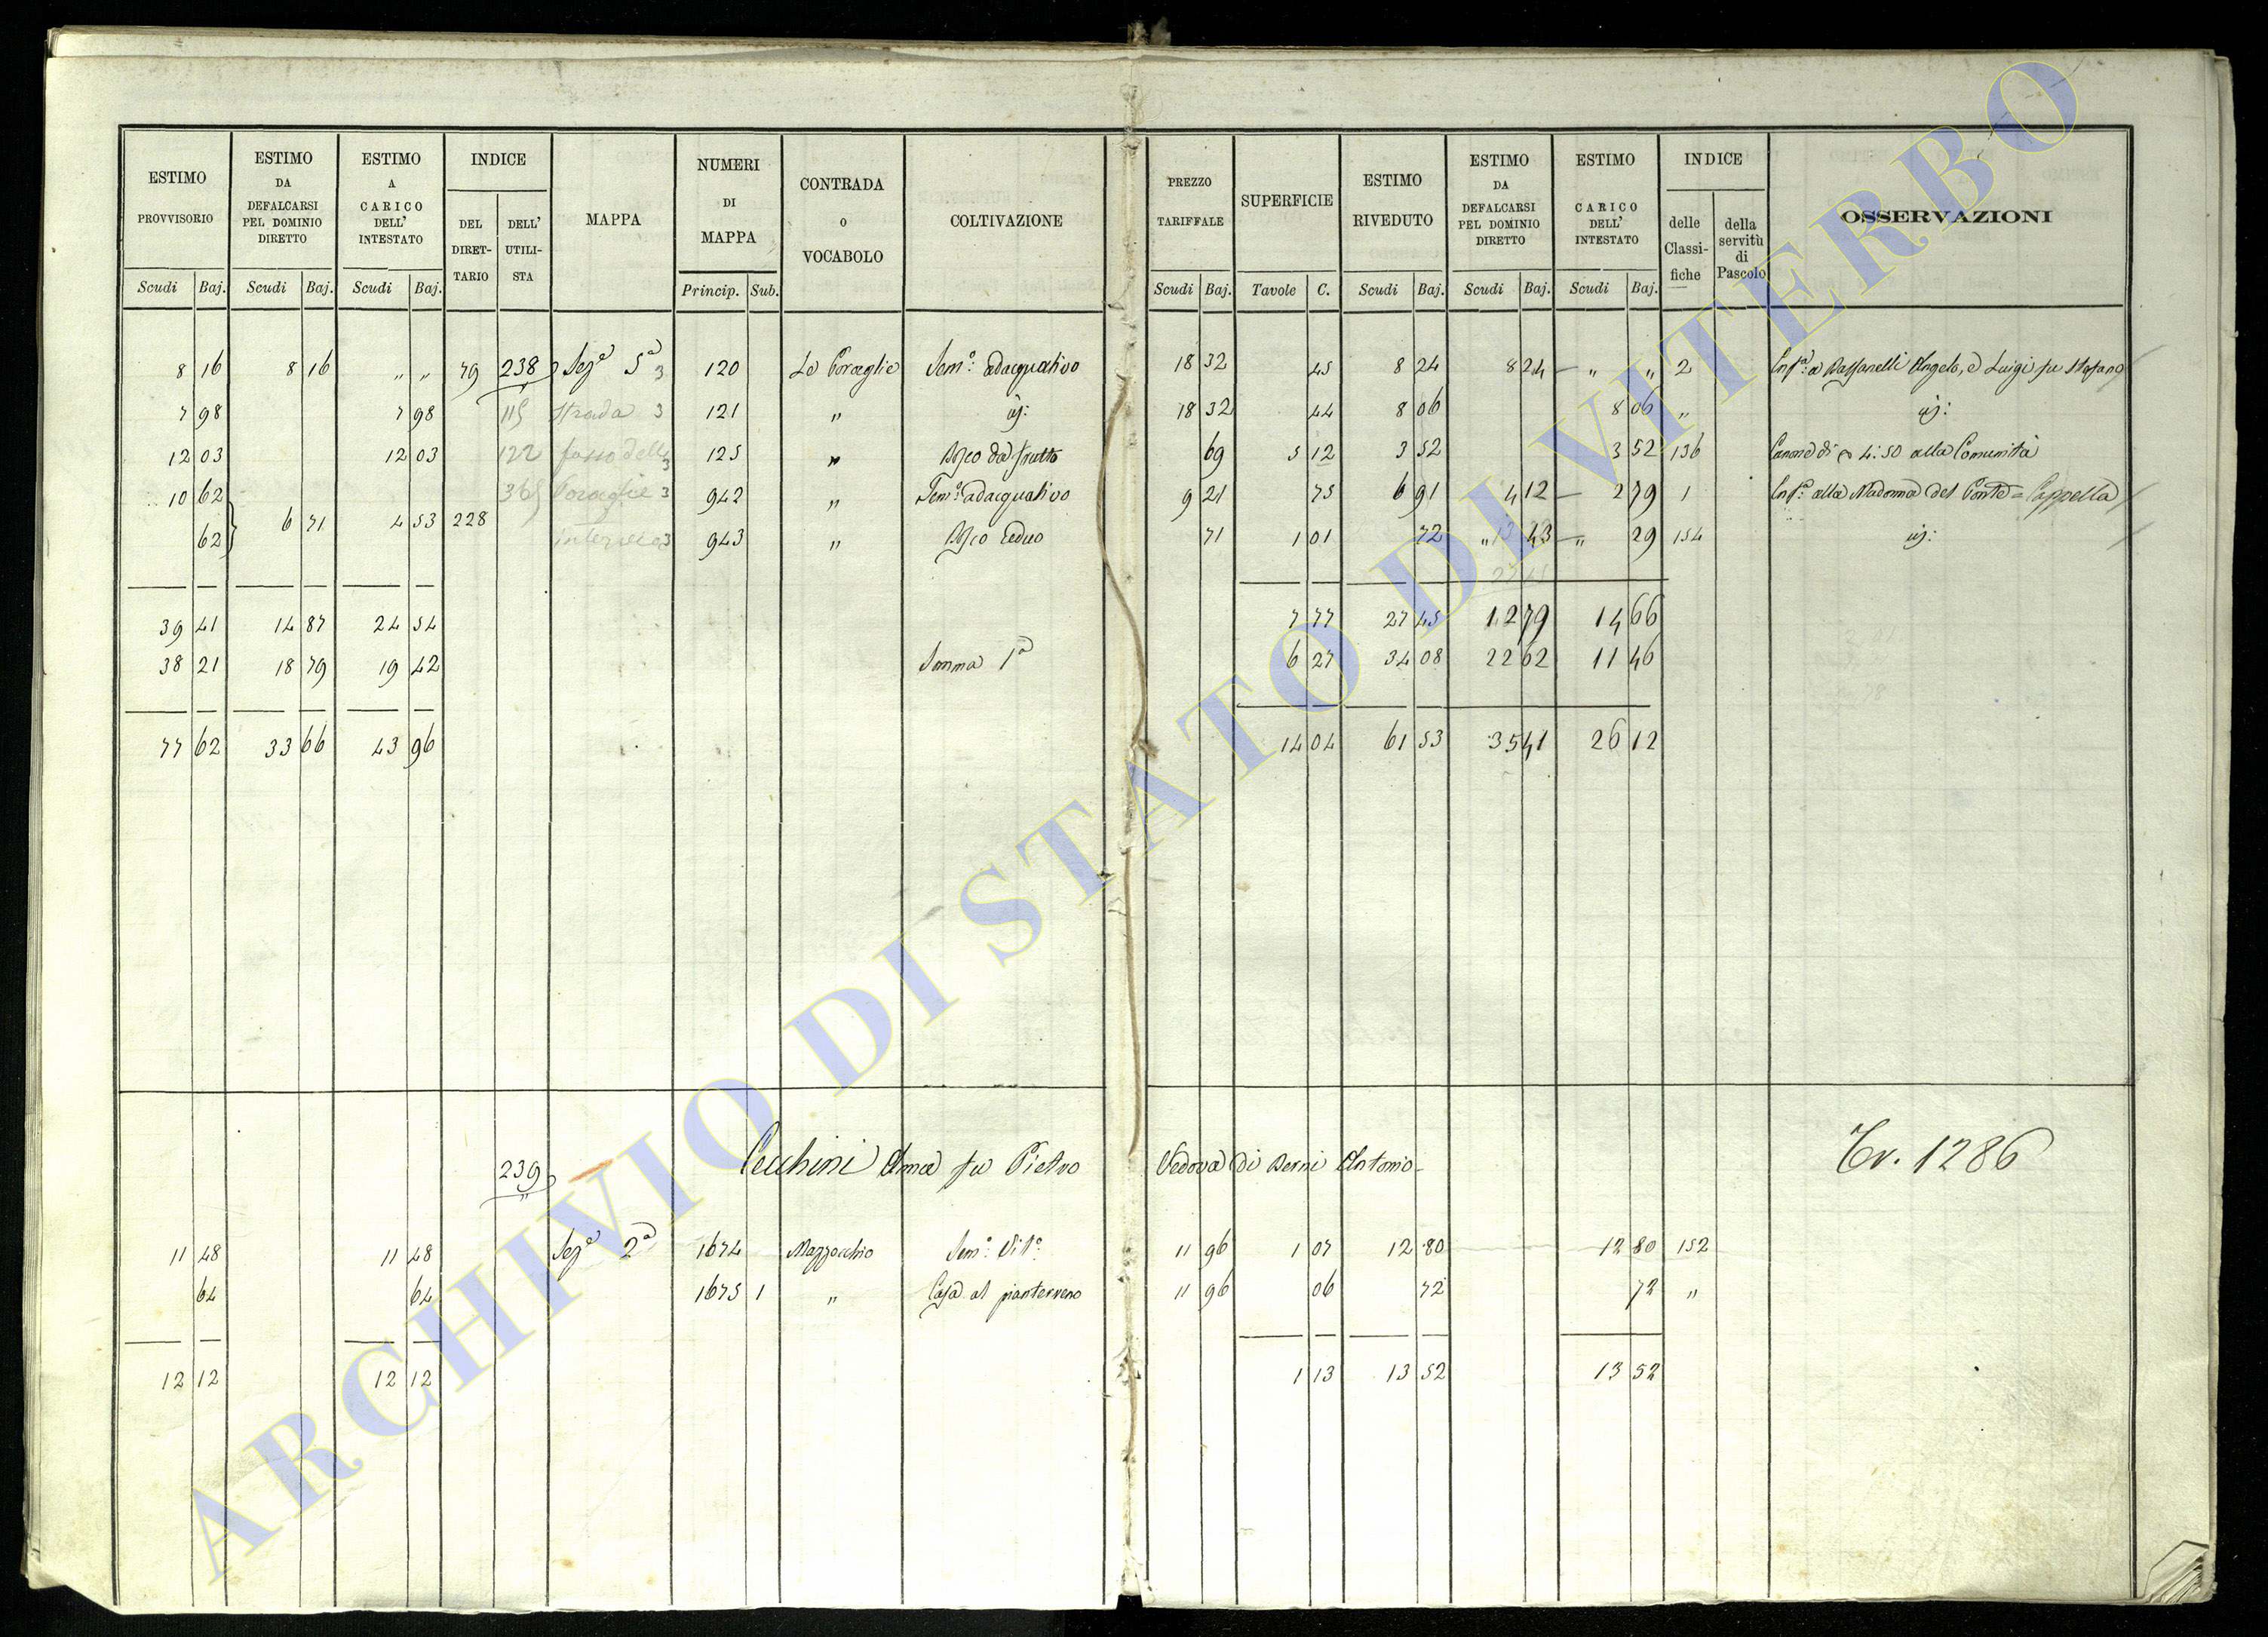 ESTIMO PROVVISORIO
ESTIMO DA DEFALCARSI PEL DOMINIO DIRETTO
ESTIMO A CARICO DELL' INTESTATO
INDICE
DEL DIRETTARIO
DELL' UTILISTA
MAPPA
NUMERI DI MAPPA
CONTRADA o VOCABOLO
COLTIVAZIONE
PREZZO TARIFFALE
SUPERFICIE
ESTIMO RIVEDUTO
ESTIMO DA DEFALCARSI PEL DOMINIO DIRETTO
ESTIMO A CARICO DELL' INTESTATO
INDICE
delle Classifiche
della servitù di Pascolo
OSSERVAZIONI
Scudi Baj. Scudi Baj. Scudi Baj. Princip. Sub. Scudi Baj. Tavole C. Scudi Baj. Scudi Baj. Scudi Baj.
8 16 8 16 " " 79 238 Sez.e 5a 3 120 Le Poraglie Sem.o adacquativo 18 32 45 8 24 8 24 — " " 2 Enf.a a Angelo, e Luigi fu Stefano
7 98 7 98 115 strada 3 121 " 18 32 44 8 06 8 06 "
12 03 12 03 122 fosso delle 3 125 " Bosco da frutto 69 5 12 3 52 3 52 136 Canone di 4:50 alla Comunità
10 62 365 Poraglie 3 942 " Sem.o adacquativo 9 21 75 6 91 4 12 — 2 79 1 Enf.a alla Madonna del Ponte = Cappella
62 6 71 4 53 228 3 943 " Bosco Ceduo 71 1 01 72 " 43 — " 29 154
39 41 14 87 24 54 7 77 27 45 12 79 14 66
38 21 18 79 19 42 Somma 1a 6 27 34 08 22 62 11 46
77 62 33 66 43 96 14 04 61 53 35 41 26 12
239 Cecchini Anna fu Pietro Vedova di Berni Antonio Tr. 1286
11 48 11 48 Sez.e 2a 1674 Mazzocchio Sem.o Vit.o 11 96 1 07 12 80 12 80 152
64 64 1675 1 " Casa al pianterreno 11 96 06 72 72 "
12 12 12 12 1 13 13 52 13 52
ARCHIVIO DI STATO DI VITERBO